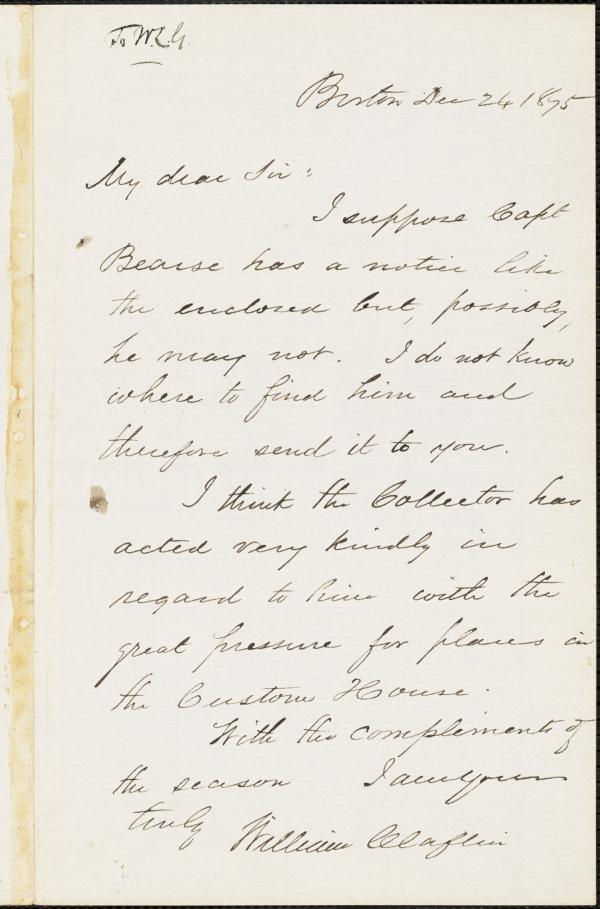 To W.L.G.
Boston Dec 24 1875
My dear Sir:
I suppose Capt
Bearse has a notice like
the enclosed but, possibly,
he may not. I do not know
where to find him and
therefore send it to you.
I think the Collector has
acted very kindly in
regard to him with the
great pressure for places in
the Custom House.
With the complements of
the season I am yours
truly
William Claflin